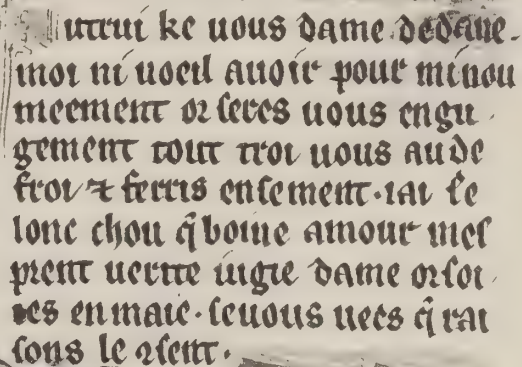 utrui ke uous dame dedaue.
moi ni uoeil auoir pour minou
meement or seres uous engu
gement tout troi uous aude
froi ⁊ ferris ensement. iai se
lonc chou q̃ boine amour mes
prent uerite iugie dame or soi
es en maie. se uous uees q̃ rai
sons le ꝛsent.